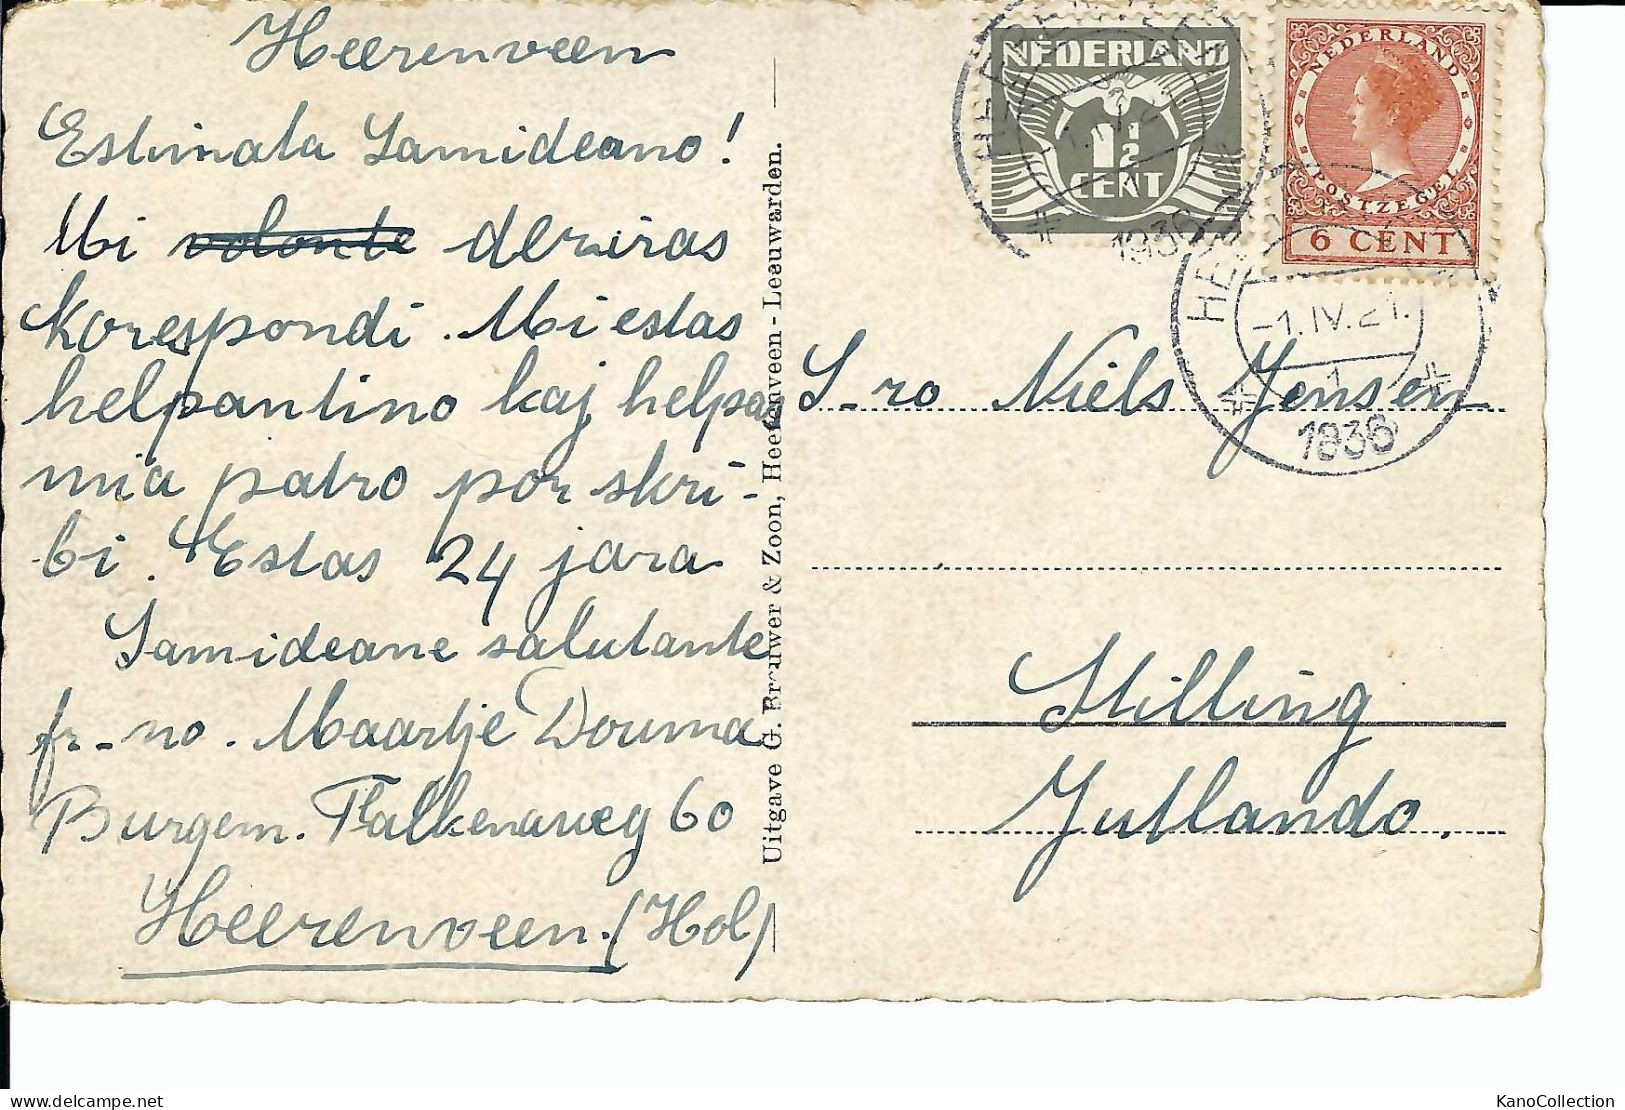 Heerenveen
Estimata Samideano!
Mi volonte deziras
korespondi. Mi estas
helpantino kaj helpas
mia patro por skri-
bi. Estas 24 jara
Samideane salutante
fr-no. Maartje Douma
Burgem. Falkenaweg 60
Heerenveen. (Hol)
Uitgave G. Brouwer & Zoon, Heerenveen-Leeuwarden.
NEDERLAND
1½
CENT
NEDERLAND
POSTZEGEL
6 CENT
1936
-1.IV.21.
1
1936
S-ro Niels Jensen
Stilling
Jutlando.
KanoCollection
www.delcampe.net